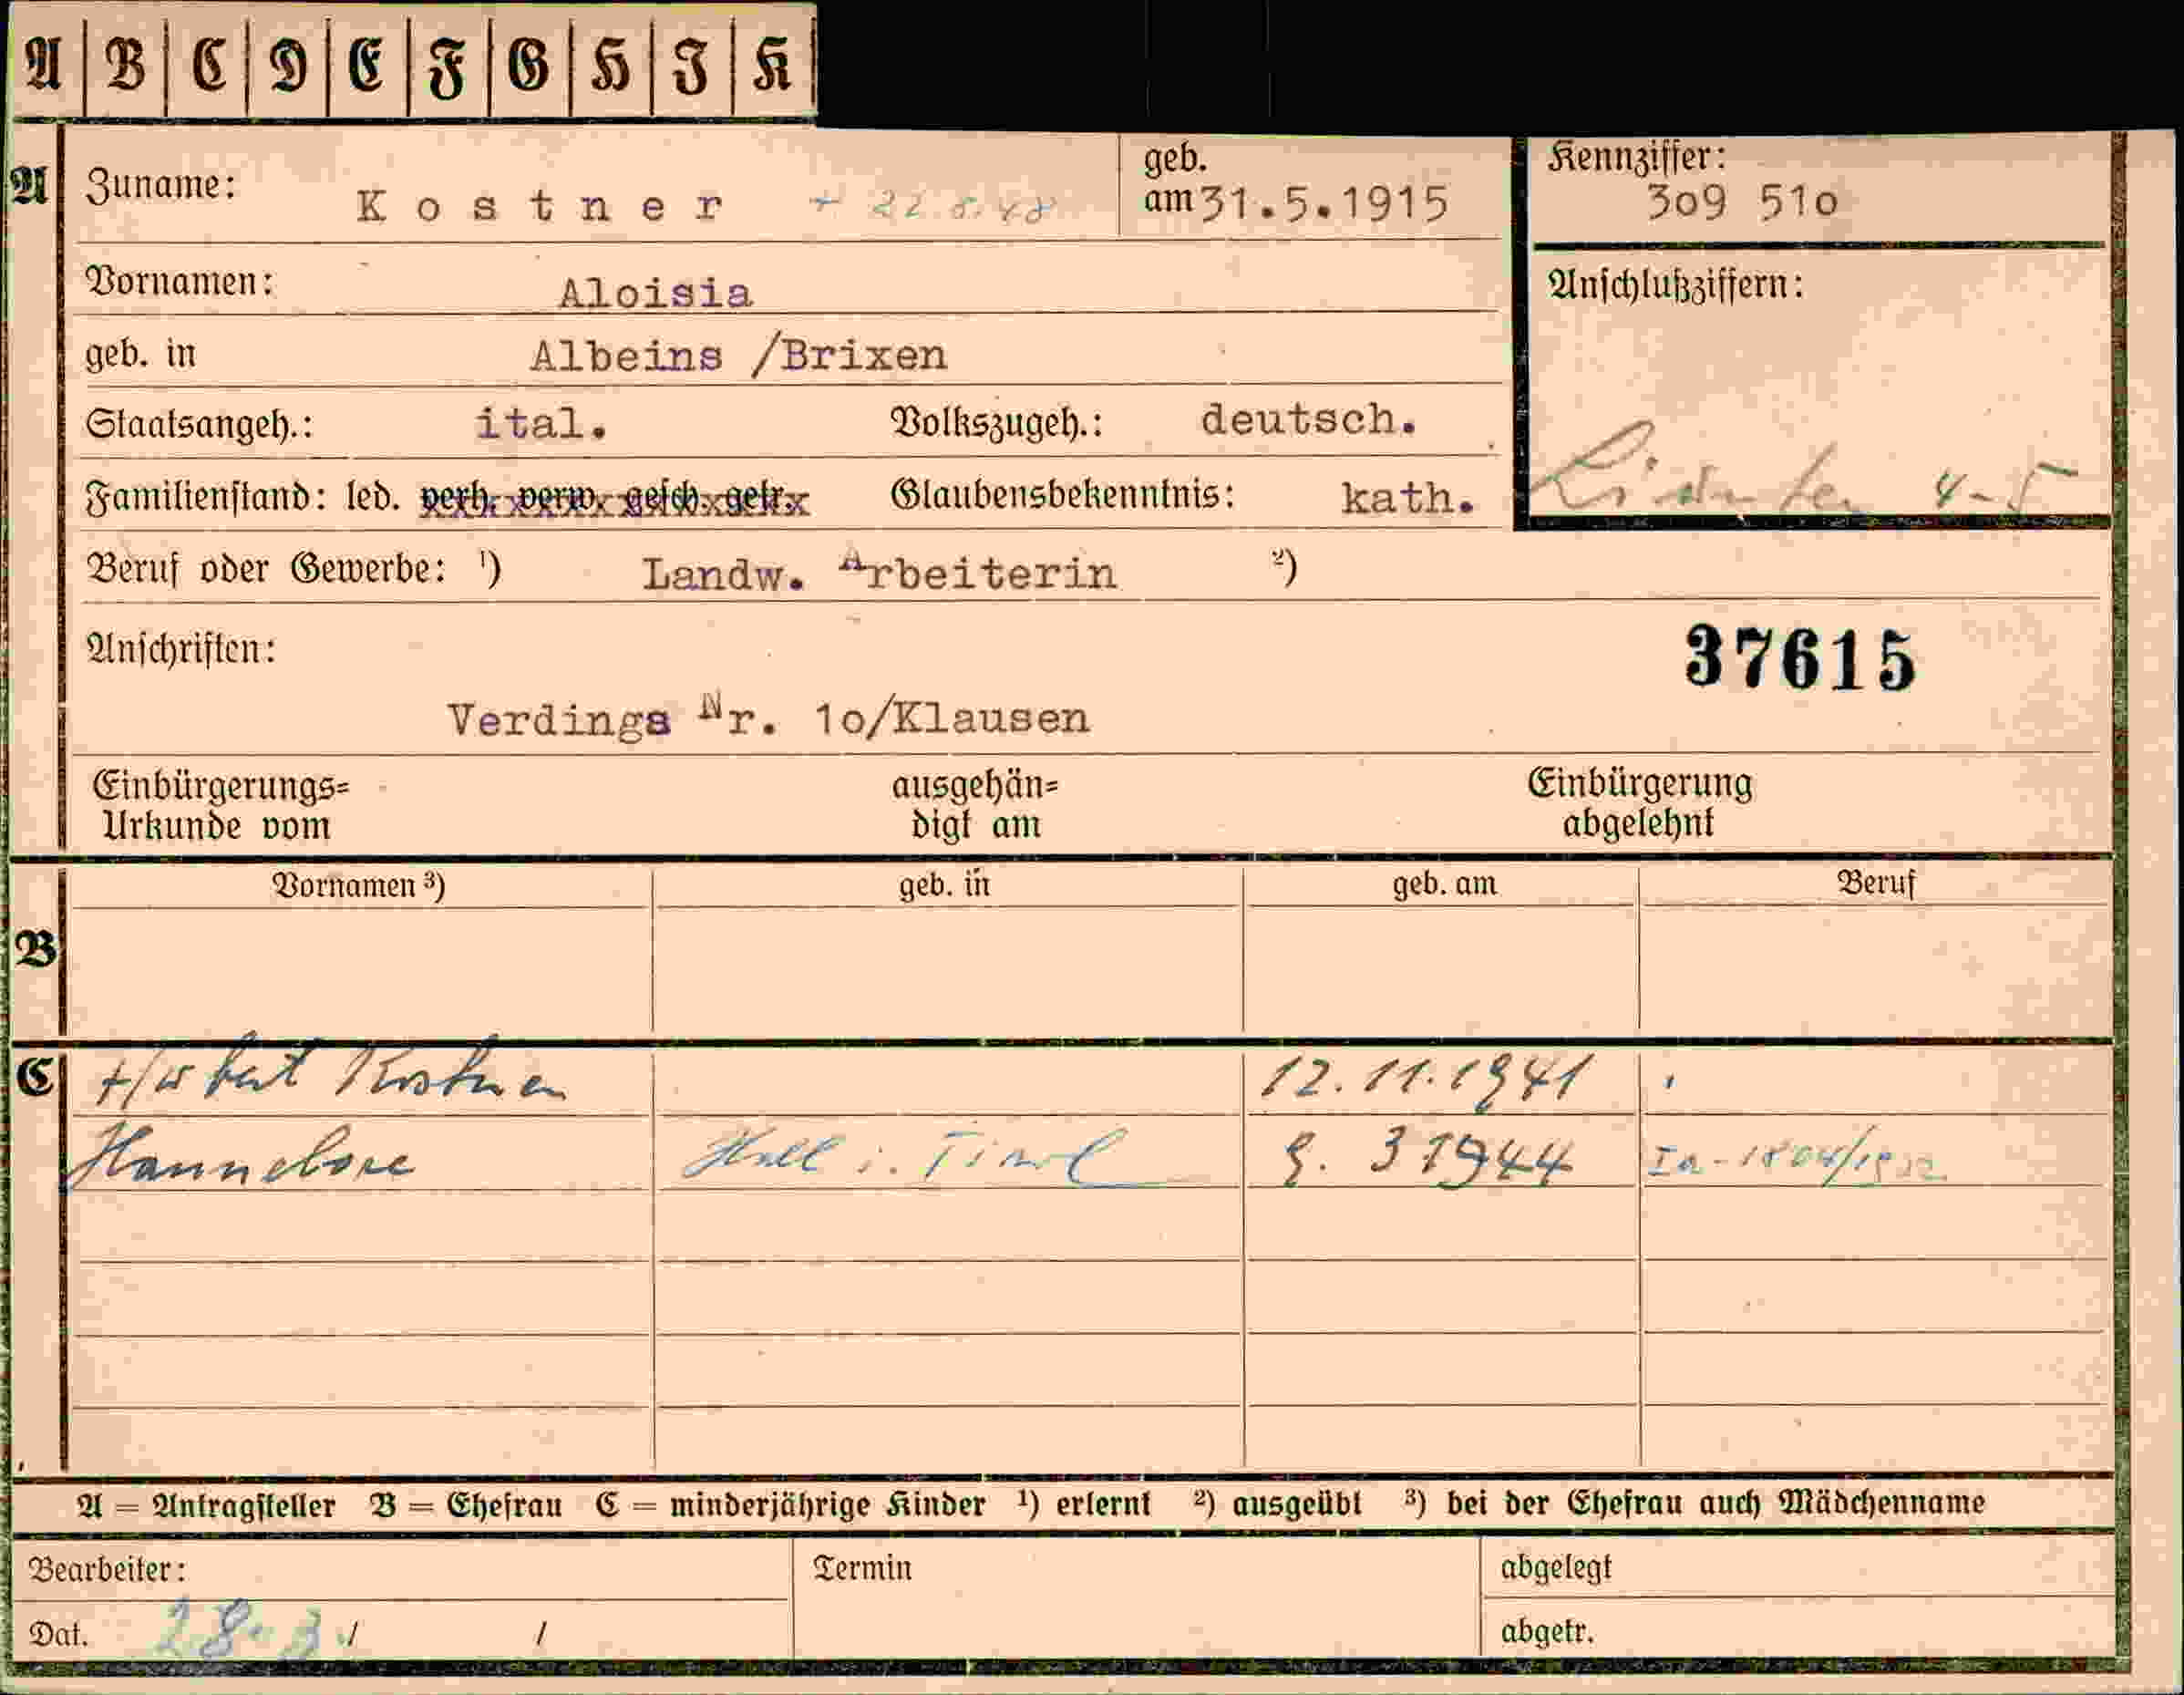 A B C D E F G H I K
A Zuname: Kostner + 22.8.48 geb. am 31.5.1915 Kennziffer: 309 51o
Vornamen: Aloisia Anschlußziffern:
geb. in Albeins /Brixen
Staatsangeh.: ital. Volkszugeh.: deutsch.
Familienstand: led. verh. verw. gesch. getr. Glaubensbekenntnis: kath. 4-5
Beruf oder Gewerbe: 1) Landw. Arbeiterin 2)
Anschriften: 37615
Verdings Nr. 1o/Klausen
Einbürgerungs= ausgehän= Einbürgerung
Urkunde vom digt am abgelehnt
Vornamen 3) geb. in geb. am Beruf
B
C Kostner 12.11.1941
Hannelore Hall i. Tirol 9. 3 1944
A = Antragsteller B = Ehefrau C = minderjährige Kinder 1) erlernt 2) ausgeübt 3) bei der Ehefrau auch Mädchenname
Bearbeiter: Termin abgelegt
Dat. 28. 3. / / abgetr.